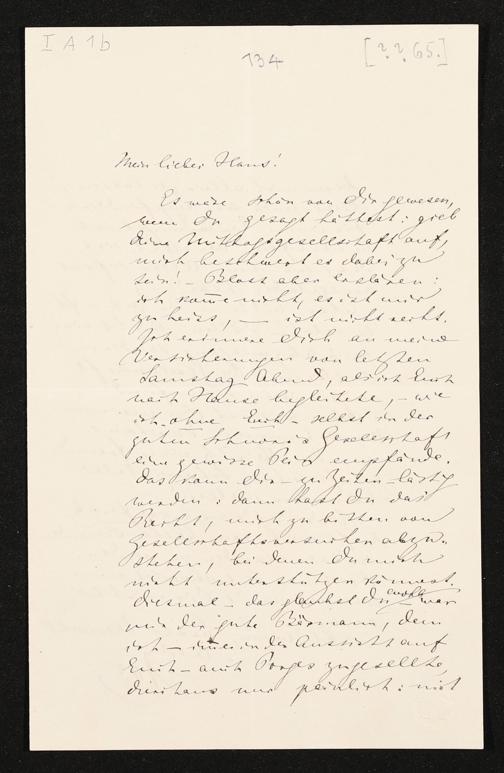 I A 1b
134
[?.?.65.]
Mein lieber Hans!
Es wäre schön von Dir gewesen,
wenn Du gesagt hättest: gieb
deine Mittagsgesellschaft auf,
mich beschwert es dabei zu
sein! - Bloss aber erklären:
ich komme nicht, es ist mir
zu heiss, — ist nicht recht.
Ich erinnere Dich an meine
Versicherungen von letzten
Samstag Abend, als ich Euch
nach Hause begleitete, - wie
ich - ohne Euch - selbst in der
guten Schnorr's Gesellschaft
eine gewisse Pein empfände.
Das kann Dir - zu Zeiten - lästig
werden: dann hast Du das
Recht, mich zu bitten von
Gesellschaftsversuchen abzu-
stehen, bei denen Du mich
nicht unterstützen könntest.
Diesmal - das glaubst Du wohl - war
mir der gute Bärmann, dem
ich - immer in der Aussicht auf
Euch - auch Porges zugesellte,
durchaus nur peinlich: mit